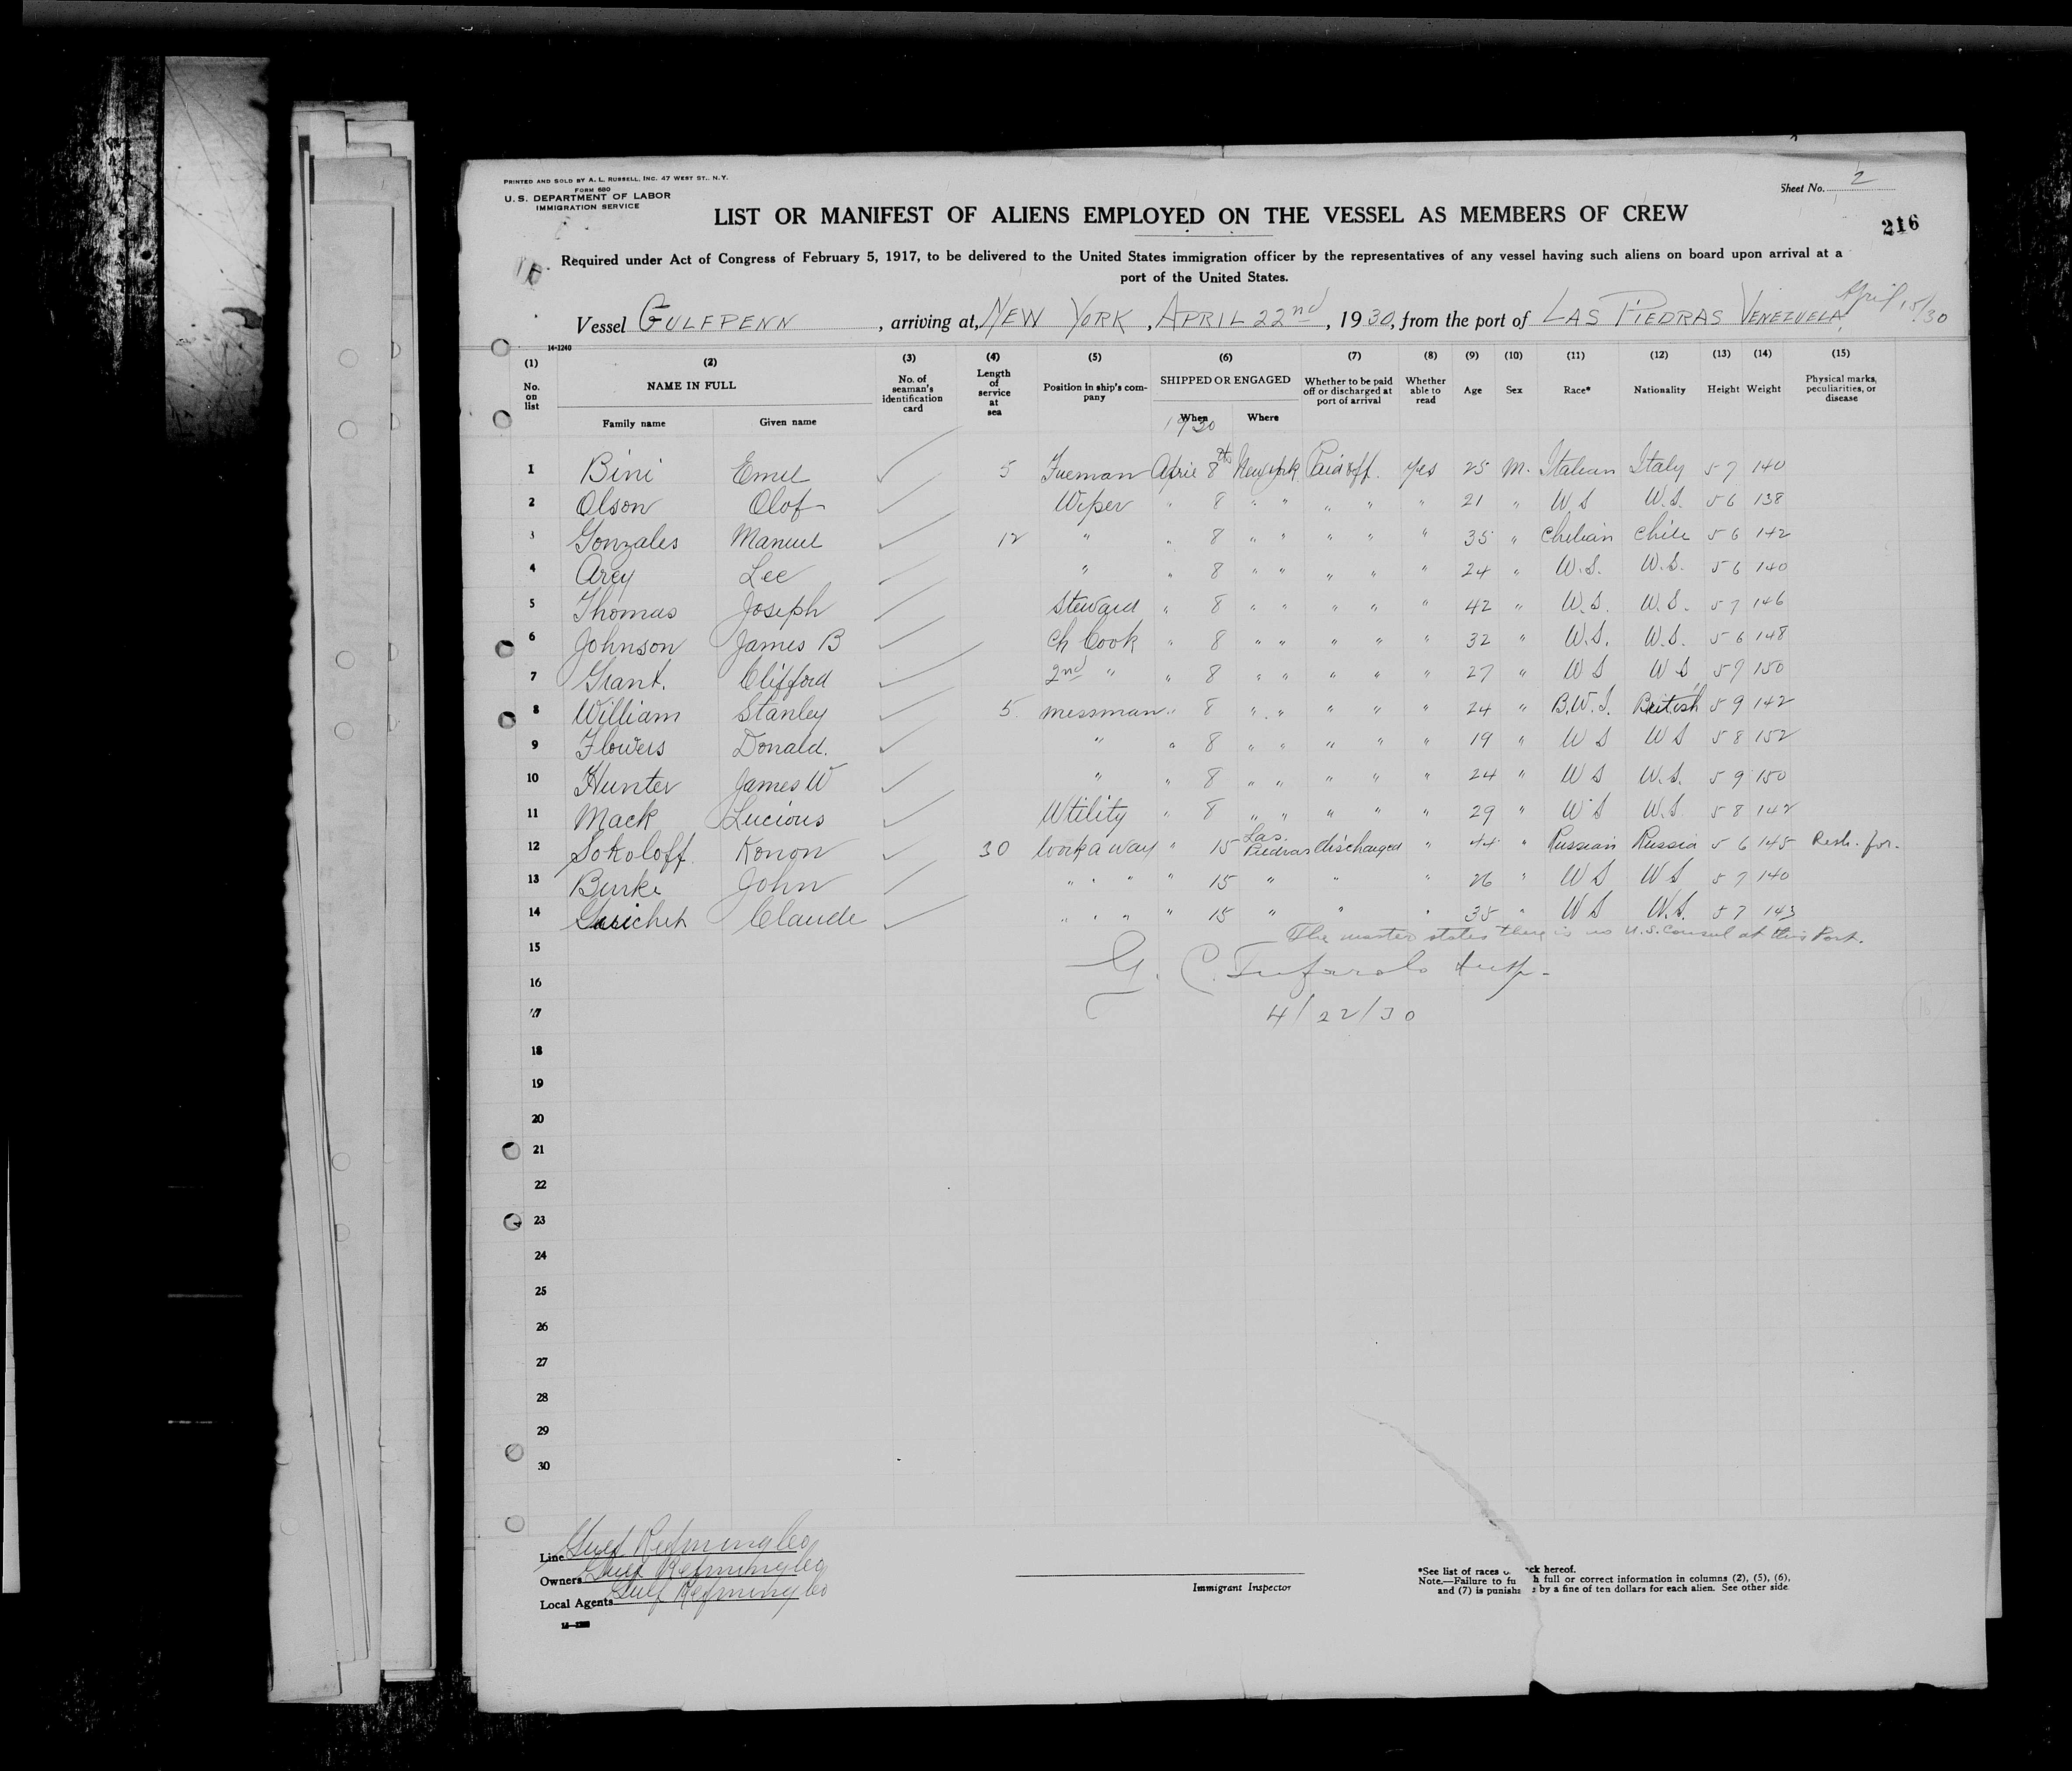 PRINTED AND SOLD BY A. L. RUSSELL, INC. 47 WEST ST., N. Y.
FORM 680
U. S. DEPARTMENT OF LABOR
IMMIGRATION SERVICE
Sheet No. 2
LIST OR MANIFEST OF ALIENS EMPLOYED ON THE VESSEL AS MEMBERS OF CREW
216
Required under Act of Congress of February 5, 1917, to be delivered to the United States immigration officer by the representatives of any vessel having such aliens on board upon arrival at a
port of the United States.
Vessel GULFPENN, arriving at, NEW YORK, APRIL 22nd, 1930, from the port of LAS PIEDRAS VENEZUELA April 15/30
14-1240
(1) (2) (3) (4) (5) (6) (7) (8) (9) (10) (11) (12) (13) (14) (15)
No. on list NAME IN FULL Family name Given name No. of seaman's identification card Length of service at sea Position in ship's company SHIPPED OR ENGAGED When Where Whether to be paid off or discharged at port of arrival Whether able to read Age Sex Race* Nationality Height Weight Physical marks, peculiarities, or disease
1930
1 Bini Emel 5 Fireman April 8th New York Paid off. Yes 25 M. Italian Italy 5 7 140
2 Olson Olof Wiper " 8 " " " " " 21 " U S U.S. 5 6 138
3 Gonzales Manuel 12 " " 8 " " " " " 35 " Chilian Chile 5 6 142
4 Arey Lee " " 8 " " " " " 24 " U.S. U.S. 5 6 140
5 Thomas Joseph Steward " 8 " " " " " 42 " U.S. U.S. 5 7 146
6 Johnson James B Ch Cook " 8 " " " " " 32 " U.S. U.S. 5 6 148
7 Grant. Clifford 2nd " " 8 " " " " " 27 " U S U S 5 9 150
8 William Stanley 5 messman " 8 " " " " " 24 " B.W.I. British 5 9 142
9 Flowers Donald. " " 8 " " " " " 19 " U S U S 5 8 152
10 Hunter James W " " 8 " " " " " 24 " U S U.S. 5 9 150
11 Mack Lucious Utility " 8 " " " " " 29 " U S U.S. 5 8 142
12 Sokoloff. Konon 30 Workaway " 15 Las Piedras discharged " 44 " Russian Russia 5 6 145
13 Burke John " " " 15 " " " 26 " U S U S 5 7 140
14 Claude " " " 15 " " " 35 " U S U.S. 5 7 143
The master states there is no U.S. Consul at this Port.
15
16
17
4/22/30
18
19
20
21
22
23
24
25
26
27
28
29
30
Line Gulf Refining Co
Owners Gulf Refining Co
Local Agents Gulf Refining Co
Immigrant Inspector
*See list of races hereof.
Note.—Failure to full or correct information in columns (2), (5), (6),
and (7) is by a fine of ten dollars for each alien. See other side